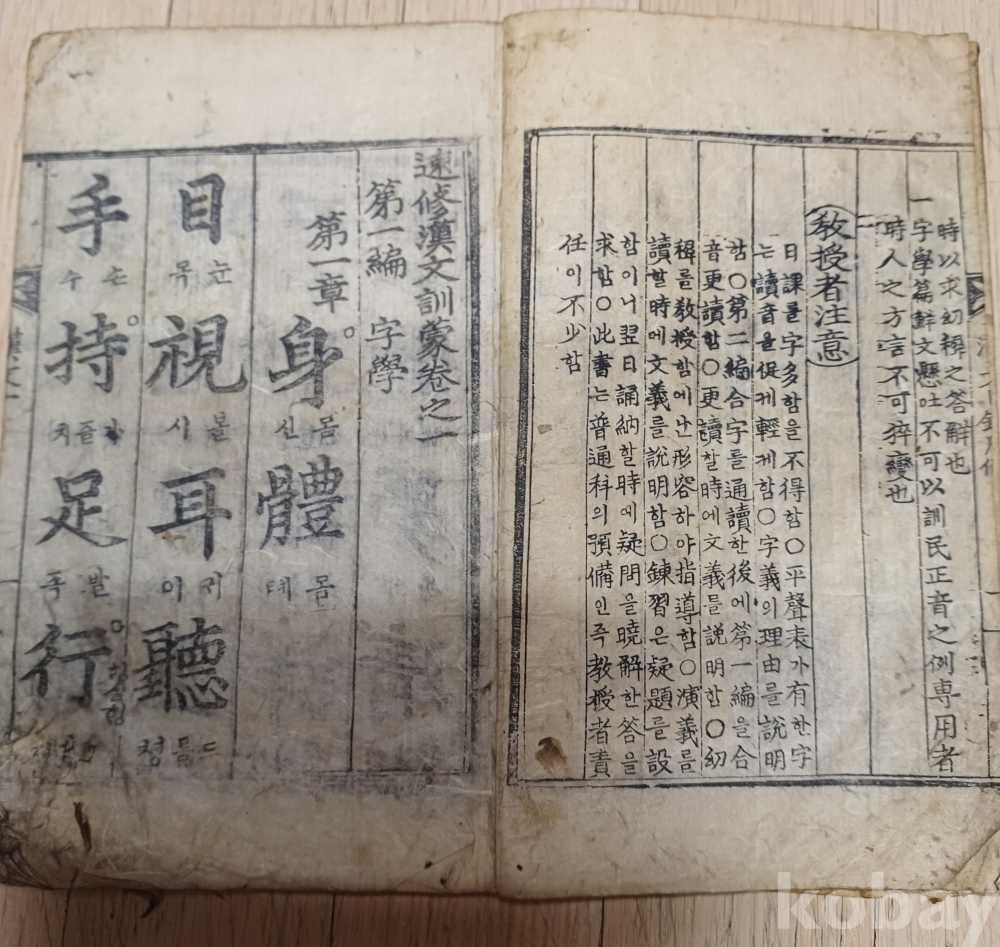 時以求幼穉之答辭也
一字學篇鮮文懸吐不可以訓民正音之例専用者
時人之方言不可猝變也
(敎授者注意)
日課를字多함을不得함○平聲表가有한字
는讀音을促게輕게함○字義의理由를説明
함○第二編合字를通讀한後에第一編을合
音更讀함○更讀할時에文義를説明함○幼
穉를敎授함에난形容하야指導함○演義를
讀할時에文義를說明함○鍊習은疑題를設
함이니翌日誦納할時에疑問을曉解한答을
求함○此書는普通科의預備인즉敎授者責
任이不少함
速修漢文訓蒙卷之一
第一編 字學
第一章 身體
몸신 몸톄
目視耳聽
눈목 볼시 귀이 드를청
手持足行
손수 가즐지 발족
kobay